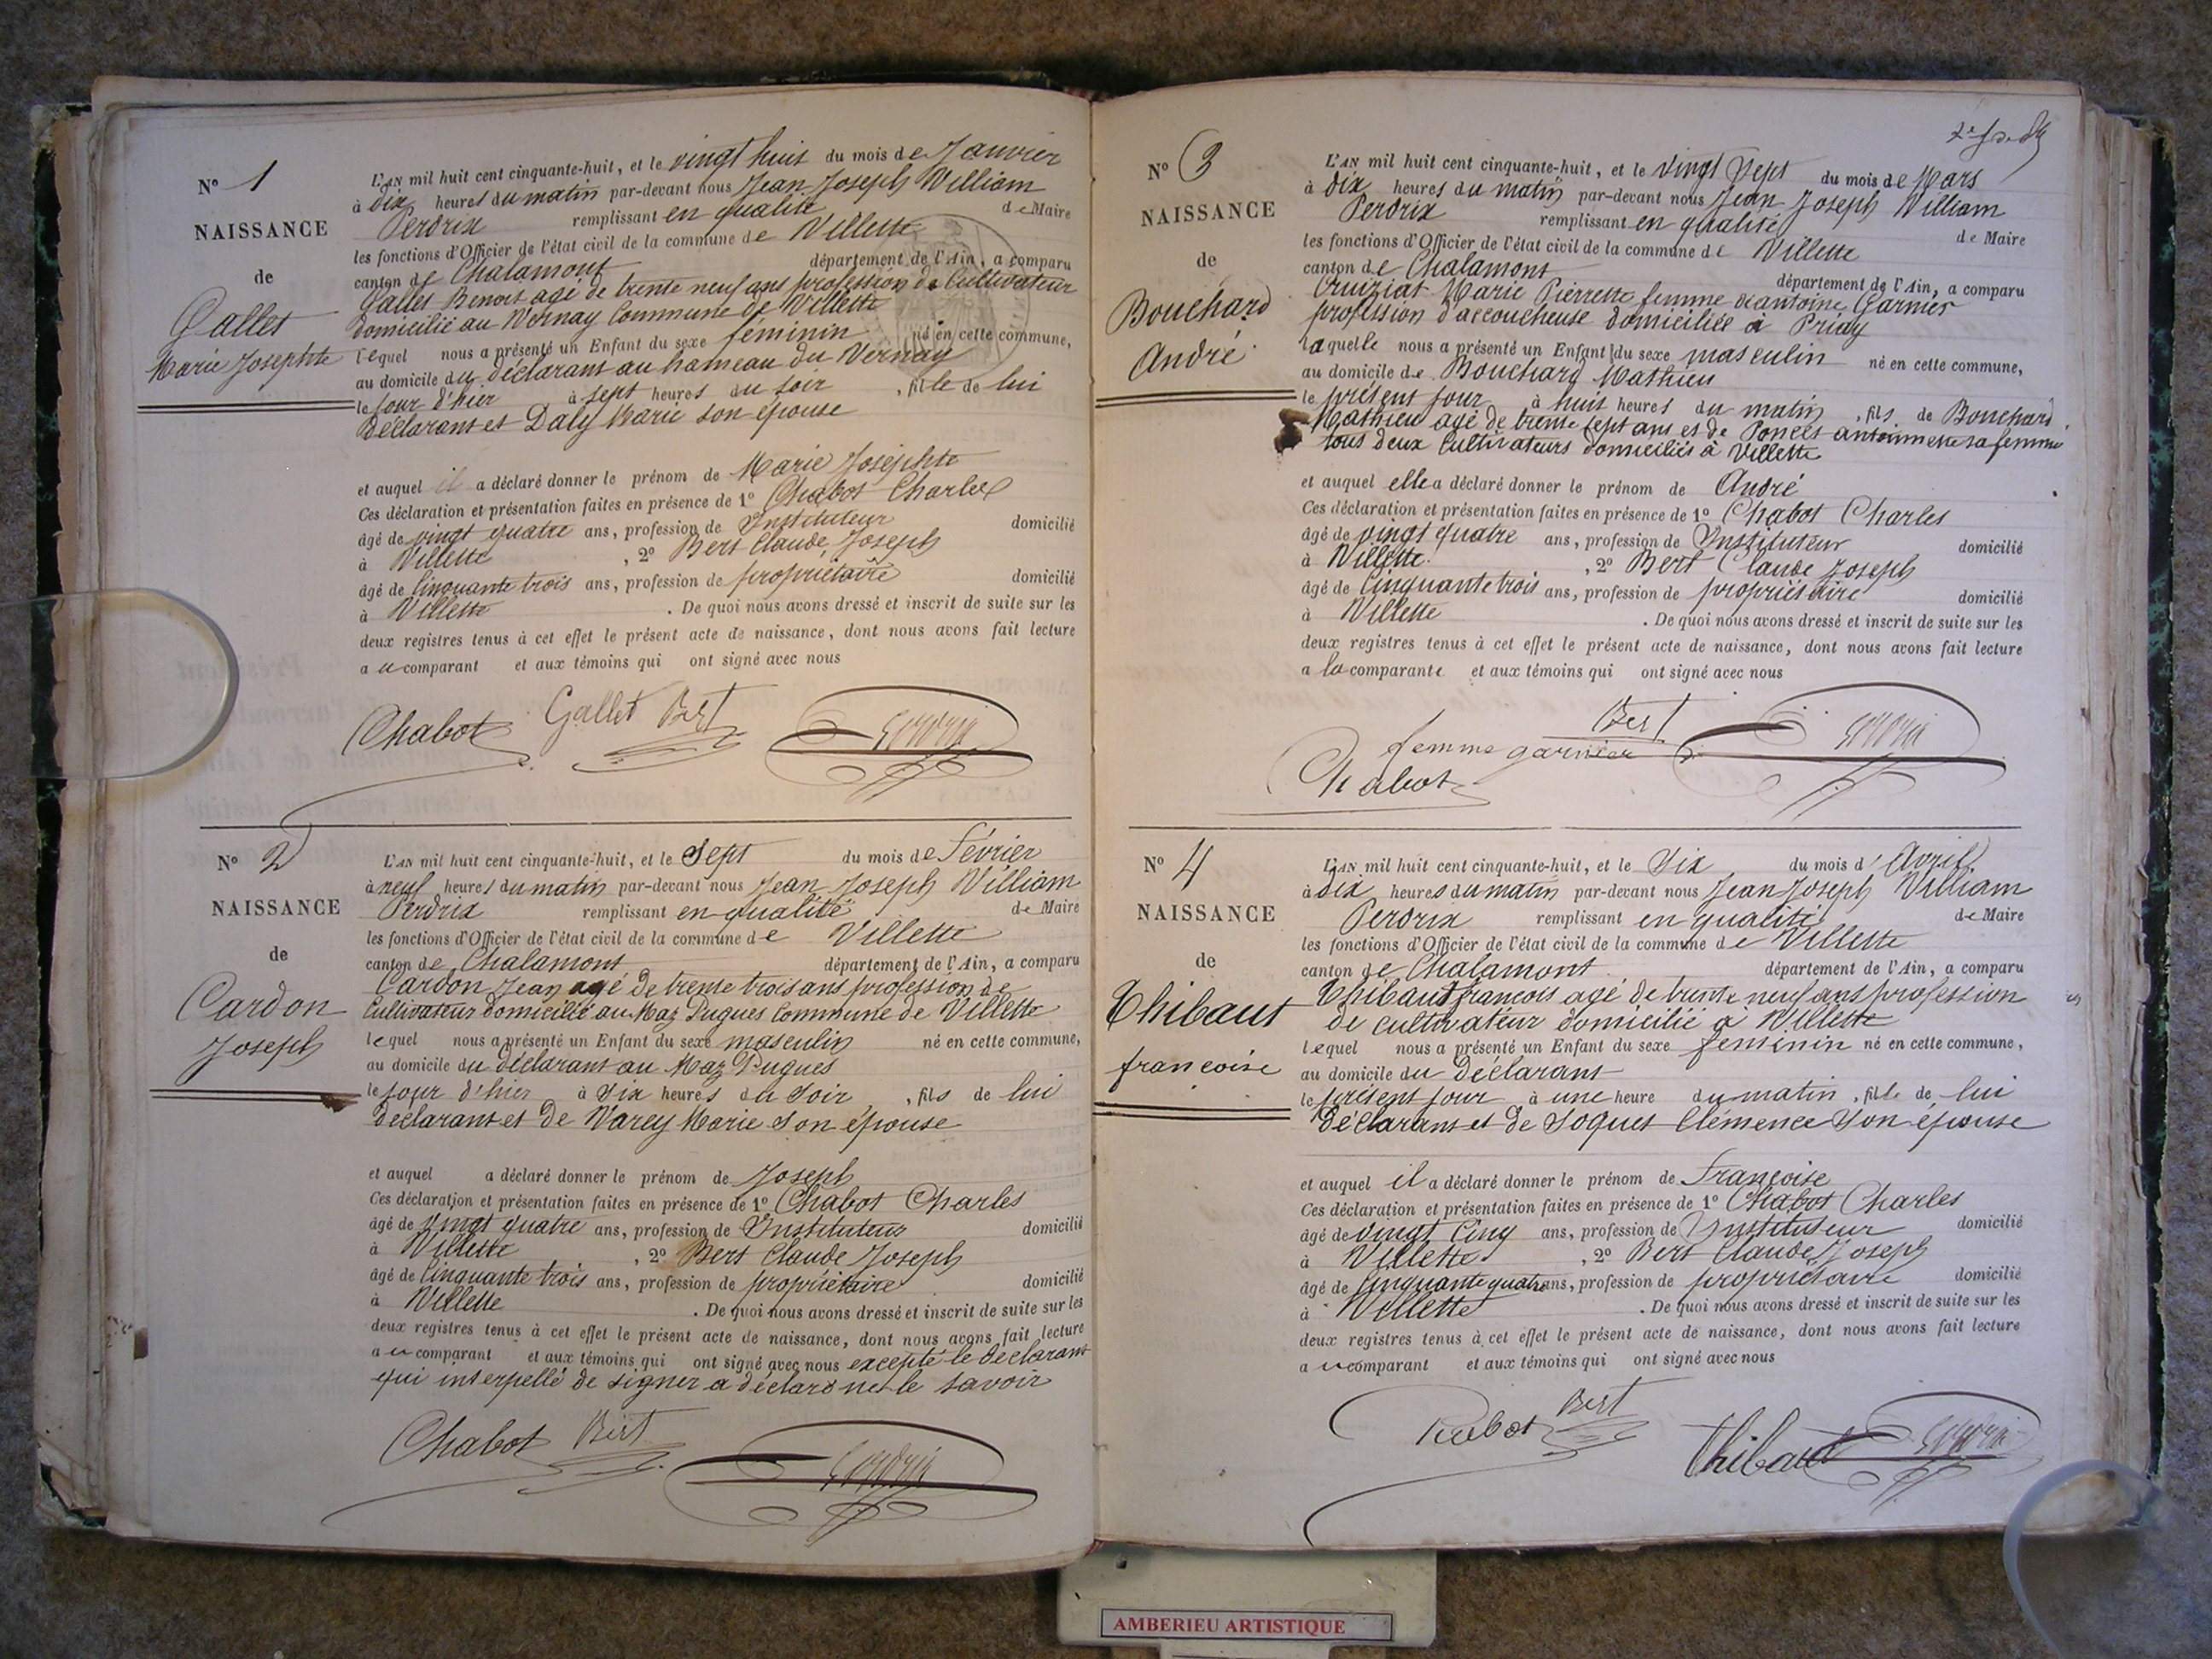 N° 1
NAISSANCE
de
Gallet
Marie Josephte
L'AN mil huit cent cinquante-huit, et le vingt huit du mois de Janvier
à dix heures du matin par-devant nous Jean Joseph William
Perdrix remplissant en qualité de Maire
les fonctions d'Officier de l'état civil de la commune de Villette
canton de Chalamont département de l'Ain, a comparu
Gallet Benoit agé de trente neuf ans profession de Cultivateur
domicilié au Vernay Commune de Villette
lequel nous a présenté un Enfant du sexe féminin né en cette commune,
au domicile du déclarant au hameau du Vernay
le jour d'hier à sept heures du soir, fille de lui
déclarant et Daly Marie son épouse
et auquel il a déclaré donner le prénom de Marie Joséphte
Ces déclaration et présentation faites en présence de 1° Chabot Charles
âgé de vingt quatre ans, profession de Instituteur domicilié
à Villette, 2° Bert Claude Joseph
âgé de Cinquante trois ans, profession de propriétaire domicilié
à Villette. De quoi nous avons dressé et inscrit de suite sur les
deux registres tenus à cet effet le présent acte de naissance, dont nous avons fait lecture
au comparant et aux témoins qui ont signé avec nous
Chabot Gallet Bert Perdrix
N° 2
NAISSANCE
de
Cardon
Joseph
L'AN mil huit cent cinquante-huit, et le Sept du mois de Février
à neuf heures du matin par-devant nous Jean Joseph William
Perdrix remplissant en qualité de Maire
les fonctions d'Officier de l'état civil de la commune de Villette
canton de Chalamont département de l'Ain, a comparu
Cardon Jean agé de trente trois ans profession de
Cultivateur domicilié au Maz Pugues Commune de Villette
lequel nous a présenté un Enfant du sexe masculin né en cette commune,
au domicile du déclarant au Maz Pugues
le jour d'hier à Six heures du Soir, fils de lui
déclarant et de Varey Marie Son épouse
et auquel a déclaré donner le prénom de Joseph
Ces déclaration et présentation faites en présence de 1° Chabot Charles
âgé de vingt quatre ans, profession de Instituteur domicilié
à Villette, 2° Bert Claude Joseph
âgé de Cinquante trois ans, profession de propriétaire domicilié
à Villette. De quoi nous avons dressé et inscrit de suite sur les
deux registres tenus à cet effet le présent acte de naissance, dont nous avons fait lecture
au comparant et aux témoins qui ont signé avec nous excepté le déclarant
qui interpellé de signer a déclaré ne le savoir
Chabot Bert Perdrix
N° 3
NAISSANCE
de
Bouchard
André
L'AN mil huit cent cinquante-huit, et le vingt Sept du mois de Mars
à dix heures du matin par-devant nous Jean Joseph William
Perdrix remplissant en qualité de Maire
les fonctions d'Officier de l'état civil de la commune de Villette
canton de Chalamont département de l'Ain, a comparu
Cruiziat Marie Pierrette femme d'antoine Garnier
profession d'accoucheuse domiciliée à Priay
laquelle nous a présenté un Enfant du sexe masculin né en cette commune,
au domicile de Bouchard Mathieu
le présent jour à huit heures du matin, fils de Bouchard
Mathieu agé de trente sept ans et de Poncet antoinnette sa femme
tous deux Cultivateurs domiciliés à Villette
et auquel elle a déclaré donner le prénom de André
Ces déclaration et présentation faites en présence de 1° Chabot Charles
âgé de vingt quatre ans, profession de Instituteur domicilié
à Villette, 2° Bert Claude Joseph
âgé de Cinquante trois ans, profession de propriétaire domicilié
à Villette. De quoi nous avons dressé et inscrit de suite sur les
deux registres tenus à cet effet le présent acte de naissance, dont nous avons fait lecture
a la comparante et aux témoins qui ont signé avec nous
Bert Perdrix
femme garnier
Chabot
N° 4
NAISSANCE
de
Thibaut
françoise
L'AN mil huit cent cinquante-huit, et le Six du mois d'Avril
à dix heures du matin par-devant nous Jean Joseph William
Perdrix remplissant en qualité de Maire
les fonctions d'Officier de l'état civil de la commune de Villette
canton de Chalamont département de l'Ain, a comparu
Thibaut francois agé de trente neuf ans profession
de cultivateur domicilié à Villette
lequel nous a présenté un Enfant du sexe feminin né en cette commune,
au domicile du déclarant
le présent jour à une heure du matin, fille de lui
déclarant et de Soques Clémence Son épouse
et auquel il a déclaré donner le prénom de Françoise
Ces déclaration et présentation faites en présence de 1° Chabot Charles
âgé de vingt Cinq ans, profession de Instituteur domicilié
à Villette, 2° Bert Claude Joseph
âgé de Cinquante quatre ans, profession de propriétaire domicilié
à Villette. De quoi nous avons dressé et inscrit de suite sur les
deux registres tenus à cet effet le présent acte de naissance, dont nous avons fait lecture
au comparant et aux témoins qui ont signé avec nous
Chabot Bert Thibaut Perdrix
AMBERIEU ARTISTIQUE